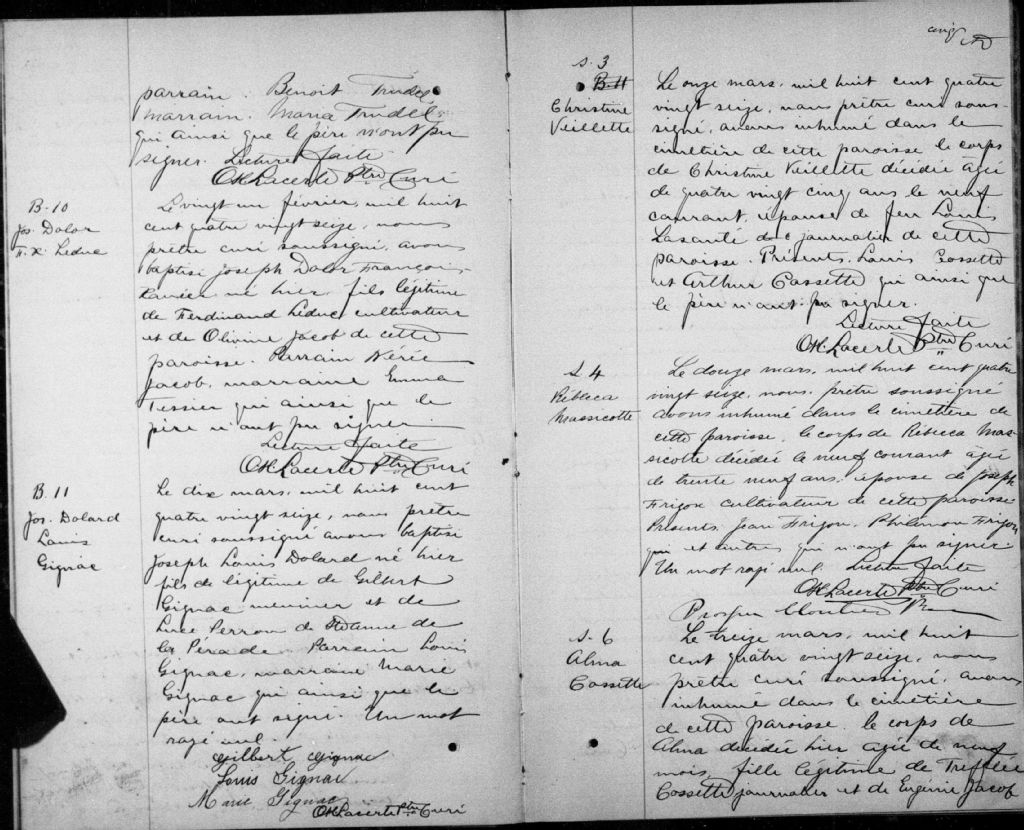 parrain. Benoit Trudel
marraine. Maria Trudel
qui ainsi que le père n'ont pu
signer. Lecture faite
OH Lacerte Ptre Curé
B-10
Jos. Dolor
F. X. Leduc
Le vingt un février, mil huit
cent quatre vingt seize, nous
prêtre curé soussigné, avons
baptisé Joseph Dolor François-
Xavier né hier, fils légitime
de Ferdinand Leduc cultivateur
et de Olivine Jacob de cette
paroisse. Parrain Nérée
Jacob, marraine Emma
Tessier qui ainsi que le
père n'ont pu signer.
Lecture faite
OH Lacerte Ptre Curé
B. 11
Jos. Dolard
Louis
Gignac
Le dix mars, mil huit cent
quatre vingt seize, nous prêtre
curé soussigné avons baptisé
Joseph Louis Dolard né hier
fils de légitime de Gilbert
Gignac meunier et de
Luce Perron de Ste Anne de
la Pérade. Parrain Louis
Gignac, marraine Marie
Gignac qui ainsi que le
père ont signé. Un mot
rayé nul.
Gilbert Gignac
Louis Gignac
Marie Gignac
OH Lacerte Ptre Curé
S. 3
B-11
Christine
Veillette
Le onze mars, mil huit cent quatre
vingt seize, nous prêtre curé sous-
signé, avons inhumé dans le
cimetière de cette paroisse le corps
de Christine Veillette décédée agée
de quatre vingt cinq ans le neuf
courant, épouse de feu Louis
Lasanté journalier de cette
paroisse. Présents, Louis Cossette
et Arthur Cossette qui ainsi que
le père n'ont pu signer.
Lecture faite
OH. Lacerte Ptre Curé
S. 4
Rébecca
Massicotte
Le douze mars, mil huit cent quatre
vingt seize, nous, prêtre soussigné
avons inhumé dans le cimetière de
cette paroisse, le corps de Rébeca Mas-
sicotte décédée le neuf courant agée
de trente neuf ans, épouse de Joseph
Frigon cultivateur de cette paroisse
Présents, Jean Frigon, Philémon Frigon
qui et autres qui n'ont pu signer
Un mot rayé nul. Lecture faite
OH Lacerte Ptre Curé
Prosper Cloutier
S. 6
Alma
Cossette
Le treize mars, mil huit
cent quatre vingt seize, nous
prêtre curé soussigné, avons
inhumé dans le cimetière
de cette paroisse, le corps de
Alma décédée hier agée de neuf
mois, fille légitime de Trefflée
Cossette journalier et de Eugénie Jacob